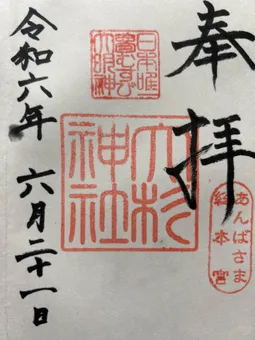 奉拝
日本唯一
夢むすび
大明神
大杉
神社
あんばさま
総本宮
令和六年 六月二十一日